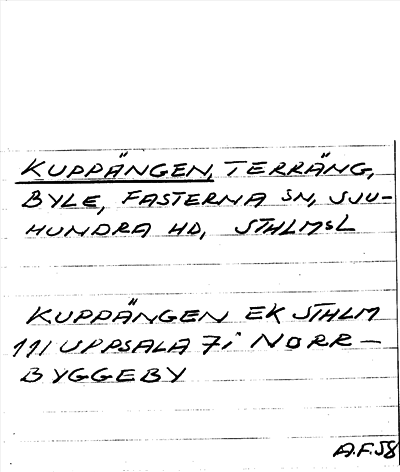 KUPPÄNGEN, TERRÄNG,
BYLE, FASTERNA SN, SJU-
HUNDRA HD, STHLMSL
KUPPÄNGEN EK STHLM
111 UPPSALA 7i NORR-
BYGGEBY
A.F.58